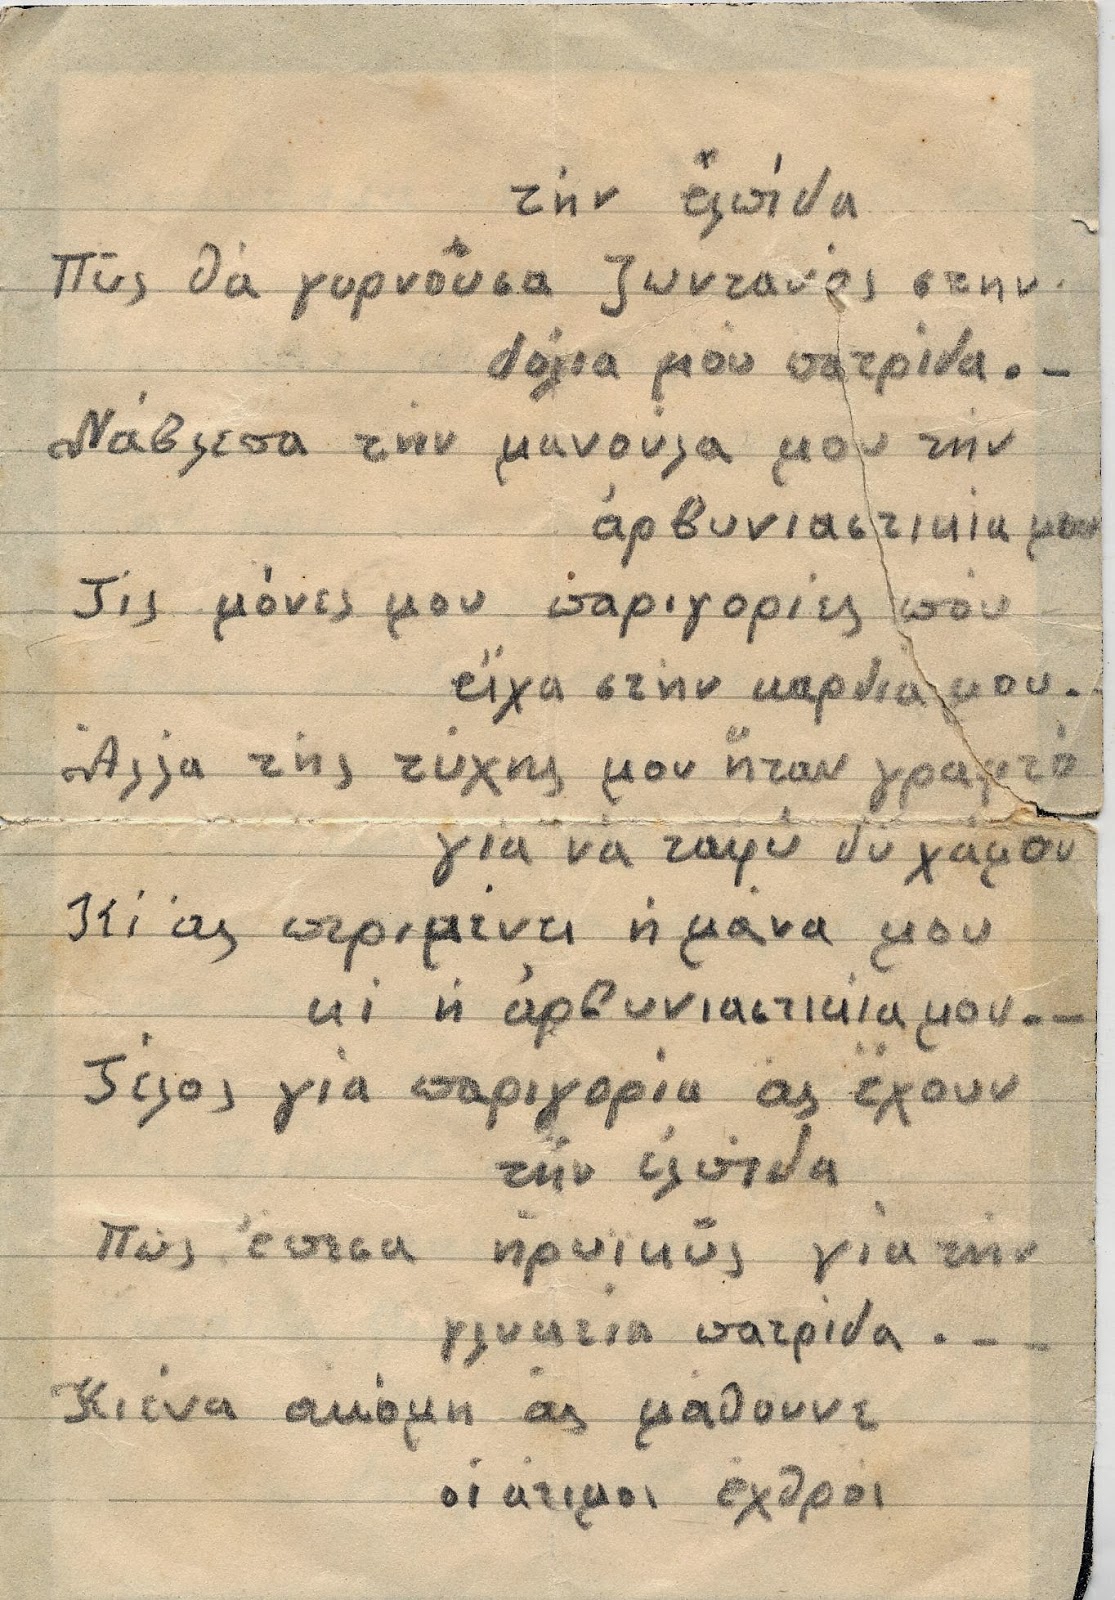 τήν ἐλπίδα
Πῶς θά γυρνοῦσα ζωντανός στην
δόλια μόυ πατρίδα . _
Νάβλεπα τήν μανούλα μου τήν
ἀρβυνιαστικιά μου
Τίς μόνες μου παριγορίες πόυ
εἴχα στήν καρδιά μου . _
Ἀλλα τής τύχης μου ἤταν γραφτό
γιά νά ταφώ δω χάμου
Κί ἀς περιμένει ἡ μάνα μου
κι ἡ ἀρβυνιαστικιά μου . _
Τέλος γιά παριγοριά ἀς ἔχουν
τήν ἐλπίδα
Πώς ἔπεσα ἡρωικῶς γιά τήν
γλυκειά πατρίδα . _ _
Κι ένα ακόμη ἀς μάθουνε
οἱ άτιμοι ἐχθροί